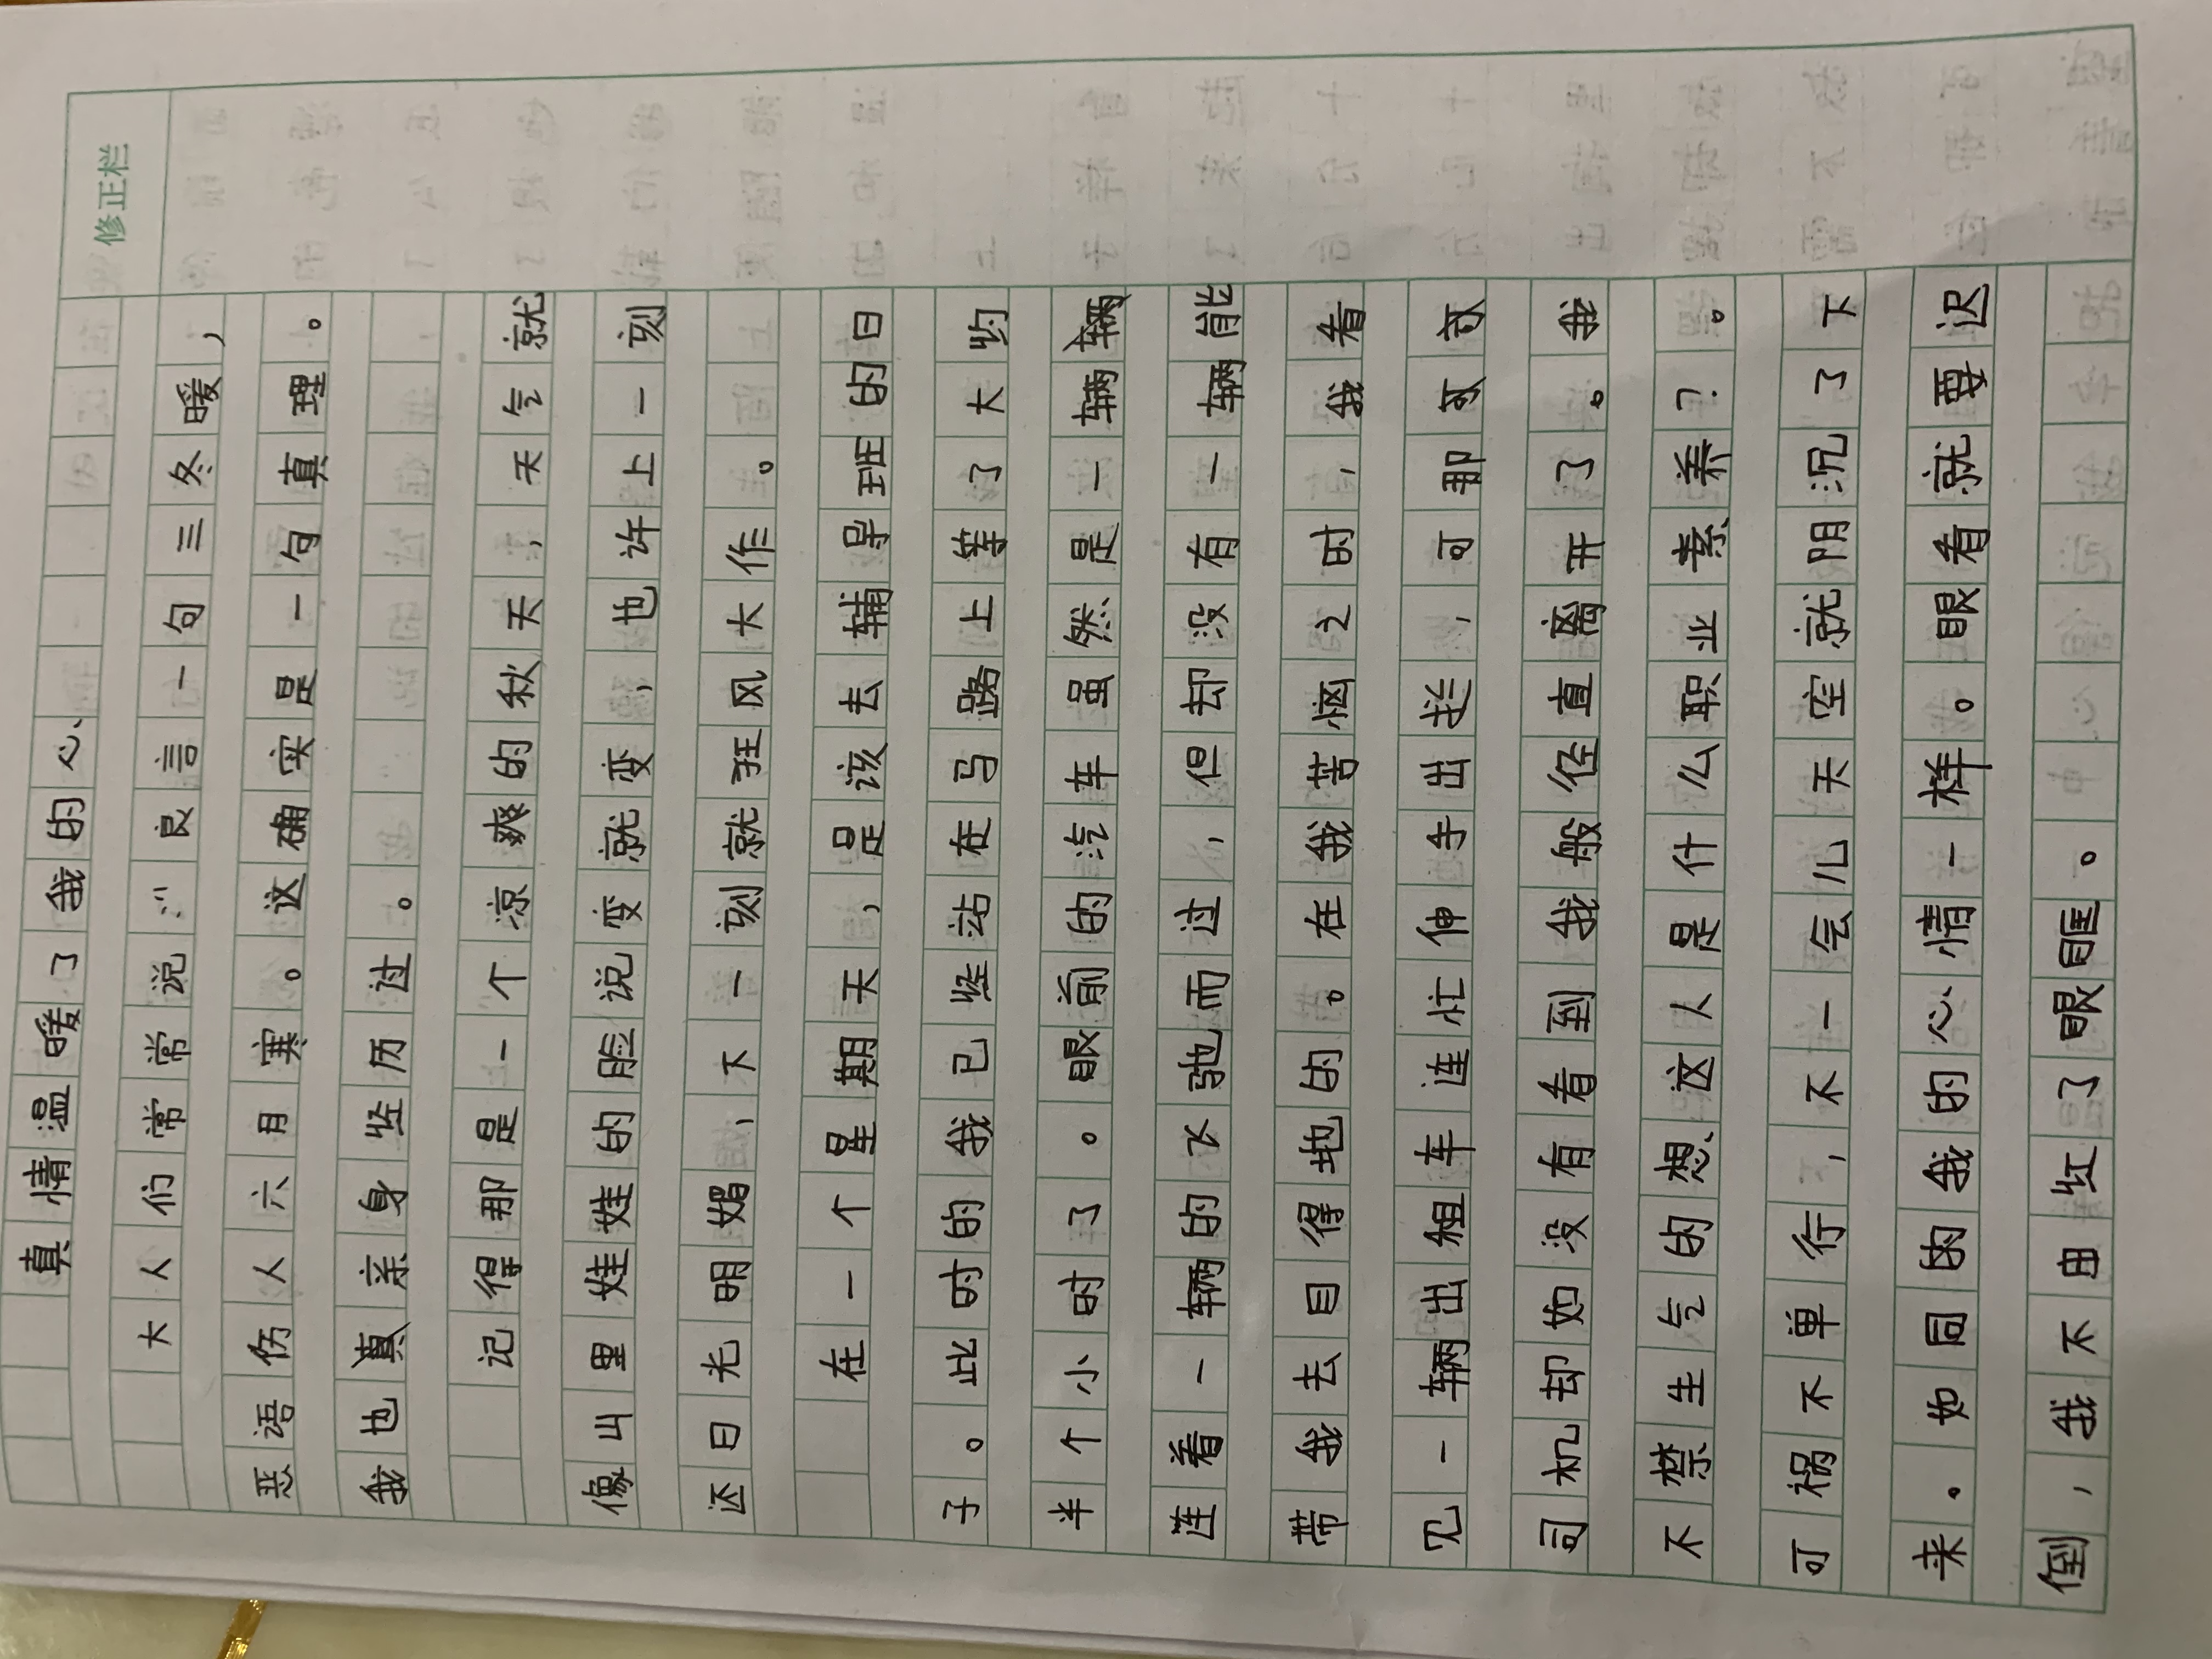 修正栏
真情温暖了我的心
大人们常常说:“良言一句三冬暖,
恶语伤人六月寒。这确实是一句真理。
我也真亲身经历过。
记得那是一个凉爽的秋天,天气就
像山里娃娃的脸说变就变,也许上一刻
还日光明媚,下一刻就狂风大作。
在一个星期天,是该去辅导班的日
子。此时的我已经站在马路上等了大约
半个小时了。眼前的汽车虽然是一辆辆
连着一辆的飞驰而过,但却没有一辆能
带我去目得地的。在我苦恼之时,我看
见一辆出租车连忙伸手出拦,可那
司机却如没有看到我般径直离开了。我
不禁生气的想这人是什么职业素养?。
可祸不单行,不一会儿天空就阴沉了下
来。如同的我的心情一样。眼看就要迟
倒,我不由红了眼眶。